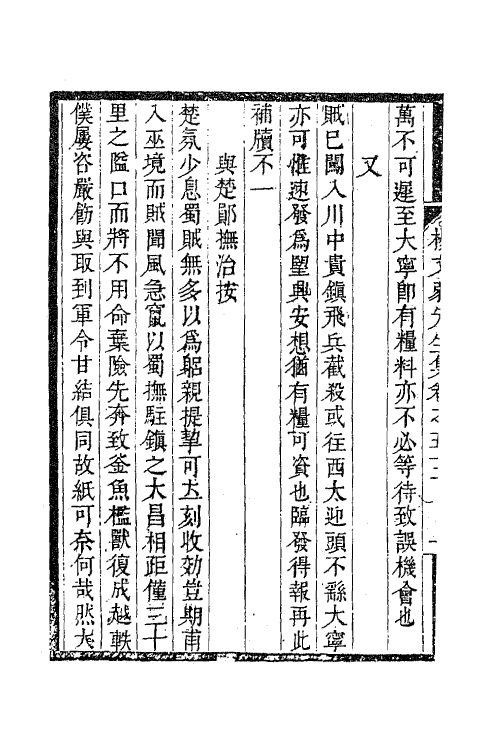 萬不可遲至大寧卽有糧料亦不必等待致誤機會也
又
賊已闖入川中貴鎮飛兵截殺或往西太迎頭不繇大寧
亦可惟速發爲望興安想猶有糧可資也臨發得報再此
補牘不一
與楚鄖撫治按
楚氛少息蜀賊無多以爲躬親提挈可立刻收効豈期甫
入巫境而賊聞風急竄以蜀撫駐鎮之大昌相距僅三十
里之隘口而將不用命棄險先奔致釜魚檻獸復成越軼
僕屢咨嚴飭與取到軍令甘結俱同故紙可柰何哉然大
楊文弱先生集卷之五十二